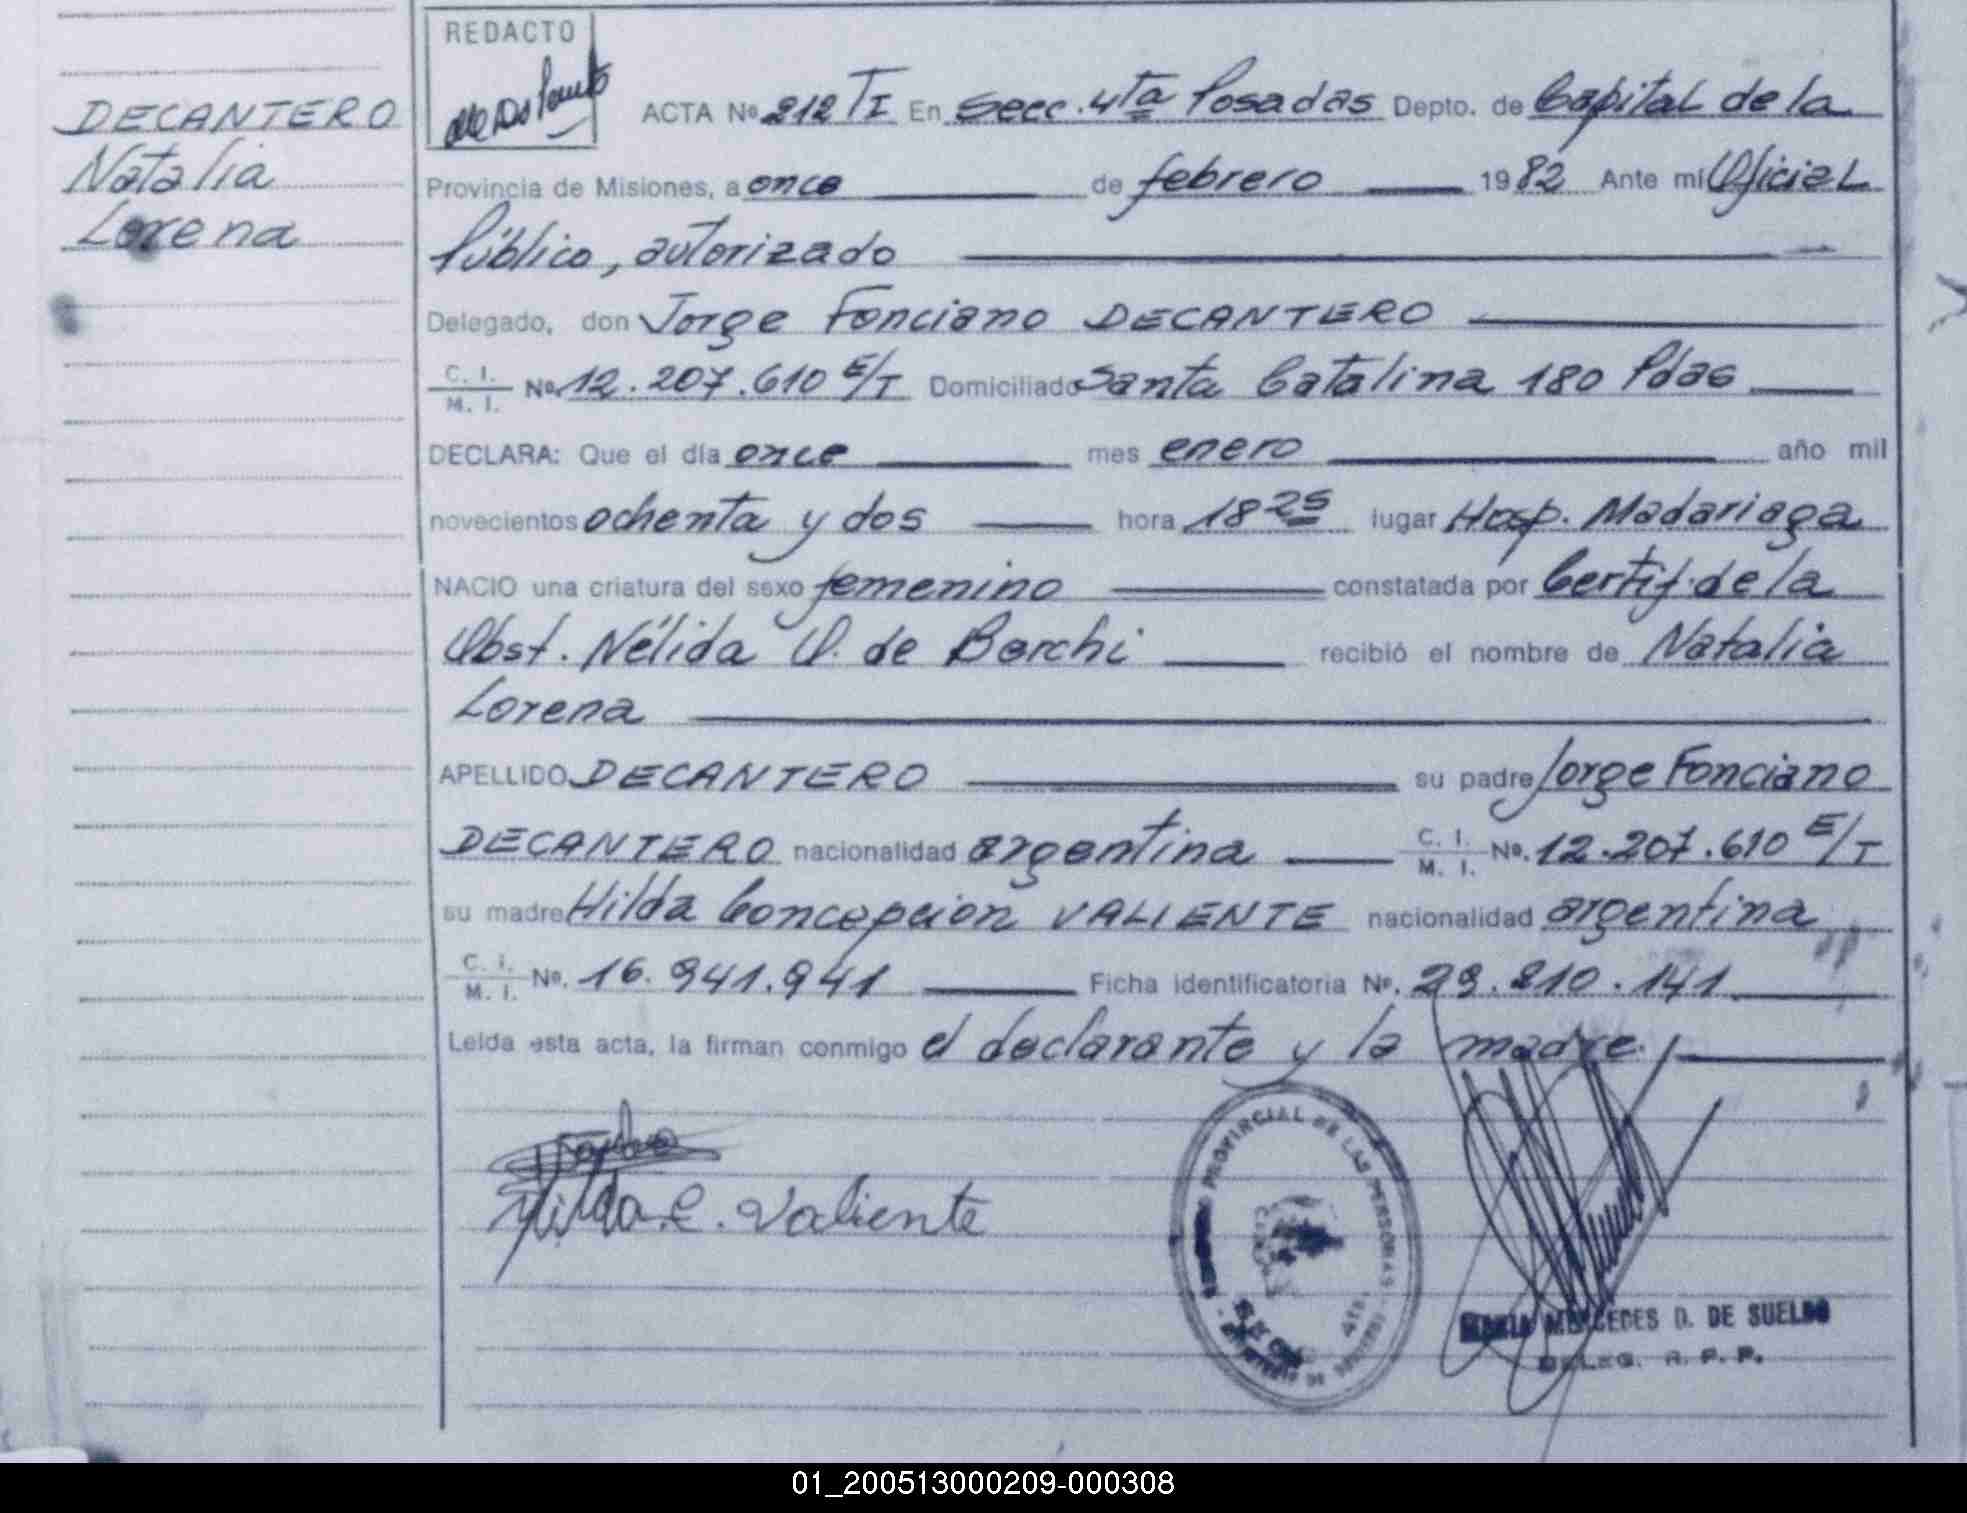 DECANTERO
Natalia
Lorena
REDACTO
ACTA Nº 212 TI En Secc. 4ta Posadas Depto. de Capital de la
Provincia de Misiones, a once de febrero 1982 Ante mí Oficial
Público, autorizado
Delegado, don Jorge Fonciano DECANTERO
C. I. / M. I. Nº. 12.207.610 E/T Domiciliado Santa Catalina 180 Pdas
DECLARA: Que el día once mes enero año mil
novecientos ochenta y dos hora 18 25 lugar Hosp. Madariaga
NACIO una criatura del sexo femenino constatada por Certif. de la
Obst. Nélida O. de Borchi recibió el nombre de Natalia
Lorena
APELLIDO DECANTERO su padre Jorge Fonciano
DECANTERO nacionalidad argentina C. I. / M. I. Nº. 12.207.610 E/T
su madre Hilda Concepcion VALIENTE nacionalidad argentina
C. I. / M. I. Nº. 16.941.941 Ficha identificatoria Nº. 29.210.141
Leida esta acta, la firman conmigo el declarante y la madre.
Hilda C. Valiente
PROVINCIAL DE LAS PERSONAS
MARIA MERCEDES D. DE SUELDO
DELEG. R. P. P.
01_200513000209-000308